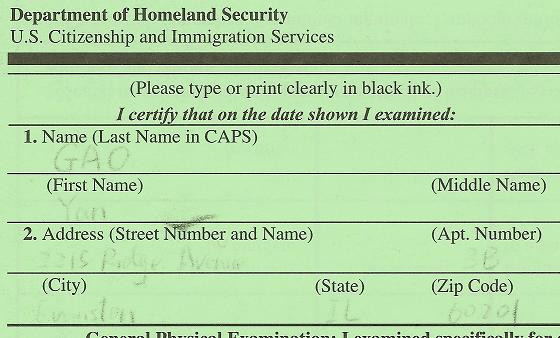 Department of Homeland Security
U.S. Citizenship and Immigration Services
(Please type or print clearly in black ink.)
I certify that on the date shown I examined:
1. Name (Last Name in CAPS)
GAO
(First Name) (Middle Name)
Yan
2. Address (Street Number and Name) (Apt. Number)
2215 Ridge Avenue 3B
(City) (State) (Zip Code)
IL 60201